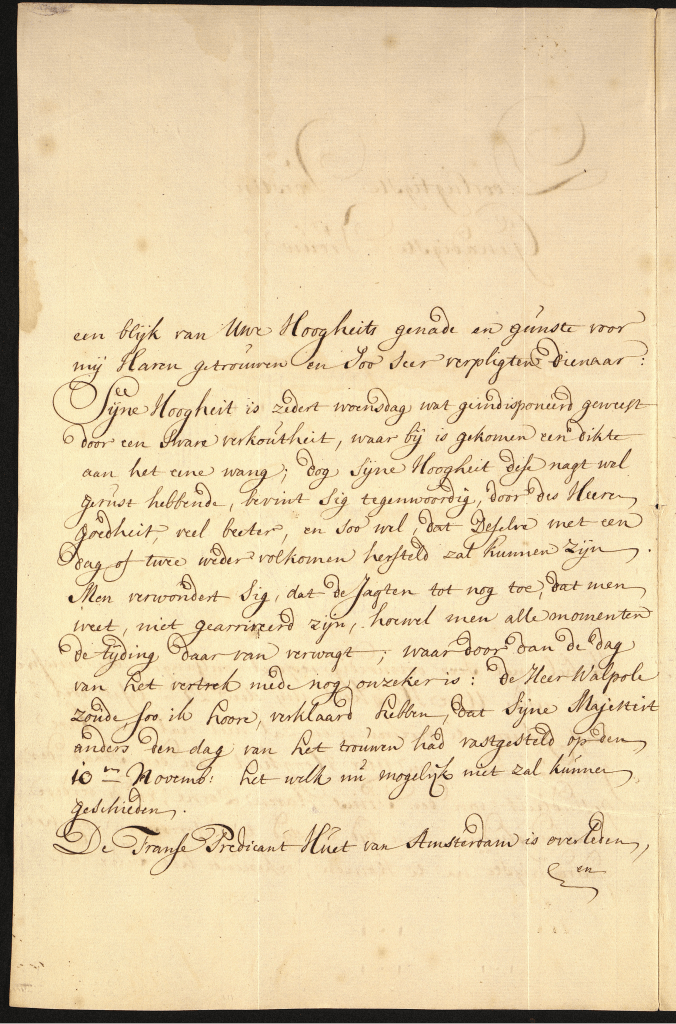 een blijk van Uwe Hoogheits genade en gunste voor
mij Haren getrouwen en Soo Seer verpligten dienaar:
Sijne Hoogheit is zedert woensdag wat geindisponeerd geweest
door een Sware verkoutheit, waar bij is gekomen een dikte
aan het eene wang; dog Sijne Hoogheit dese nagt wel
gerust hebbende, bevint Sig tegenwoordig, door des Heeren
goedheit, veel beeter, en soo wel, dat Deselve met een
dag of twee weder volkomen hersteld zal kunnen zijn.
Men verwondert Sig, dat de Jagten tot nog toe, dat men
weet, niet gearriveerd zijn, hoewel men alle momenten
de tijding daar van verwagt; waar door dan de dag
van het vertrek mede nog onzeker is: de Heer Walpole
zoude soo ik hoore, verklaard hebben, dat Sijne Majesteit
anders den dag van het trouwen had vastgesteld op den
10en Novemb: het welk nu mogelijk niet zal kunnen
geschieden.
De Franse Predicant Huet van Amsterdam is overleden,
en